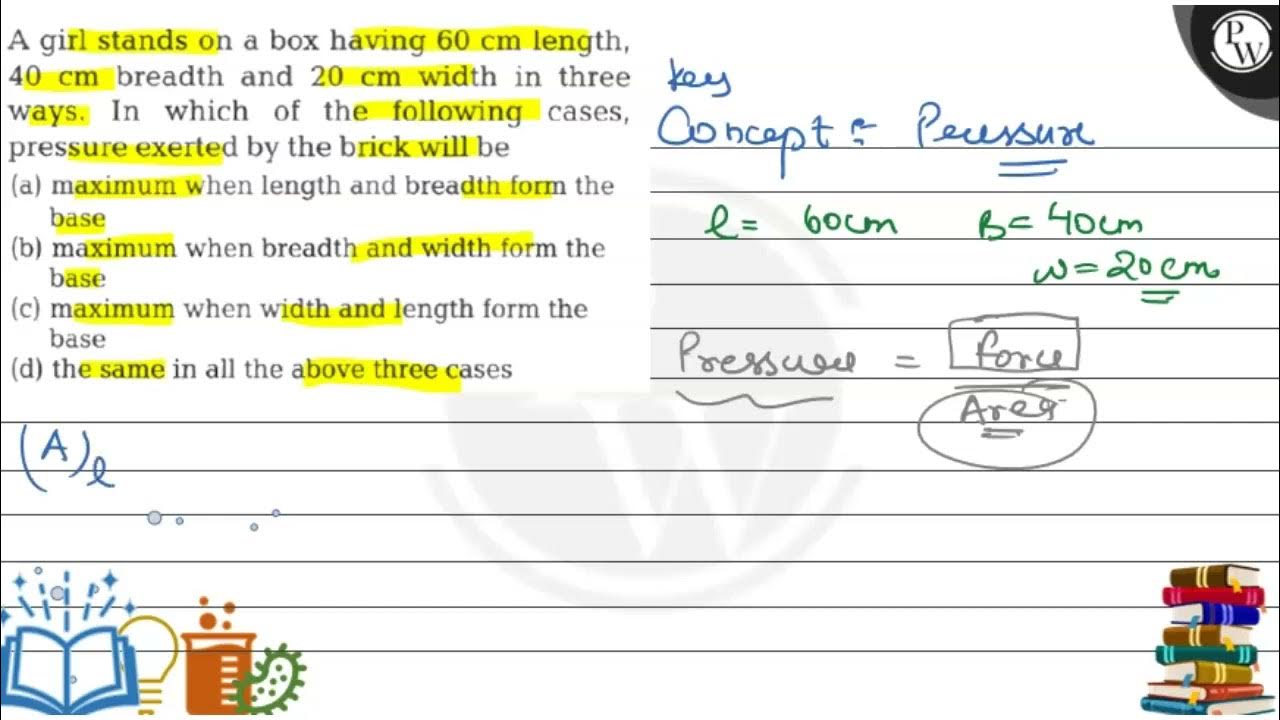 A girl stands on a box having 60 cm length,
40 cm breadth and 20 cm width in three
ways. In which of the following cases,
pressure exerted by the brick will be
(a) maximum when length and breadth form the
base
(b) maximum when breadth and width form the
base
(c) maximum when width and length form the
base
(d) the same in all the above three cases
P
W
key
Concept :- Pressure
l = 60cm B = 40cm
w = 20 cm
Pressure = force
Area
(A) l